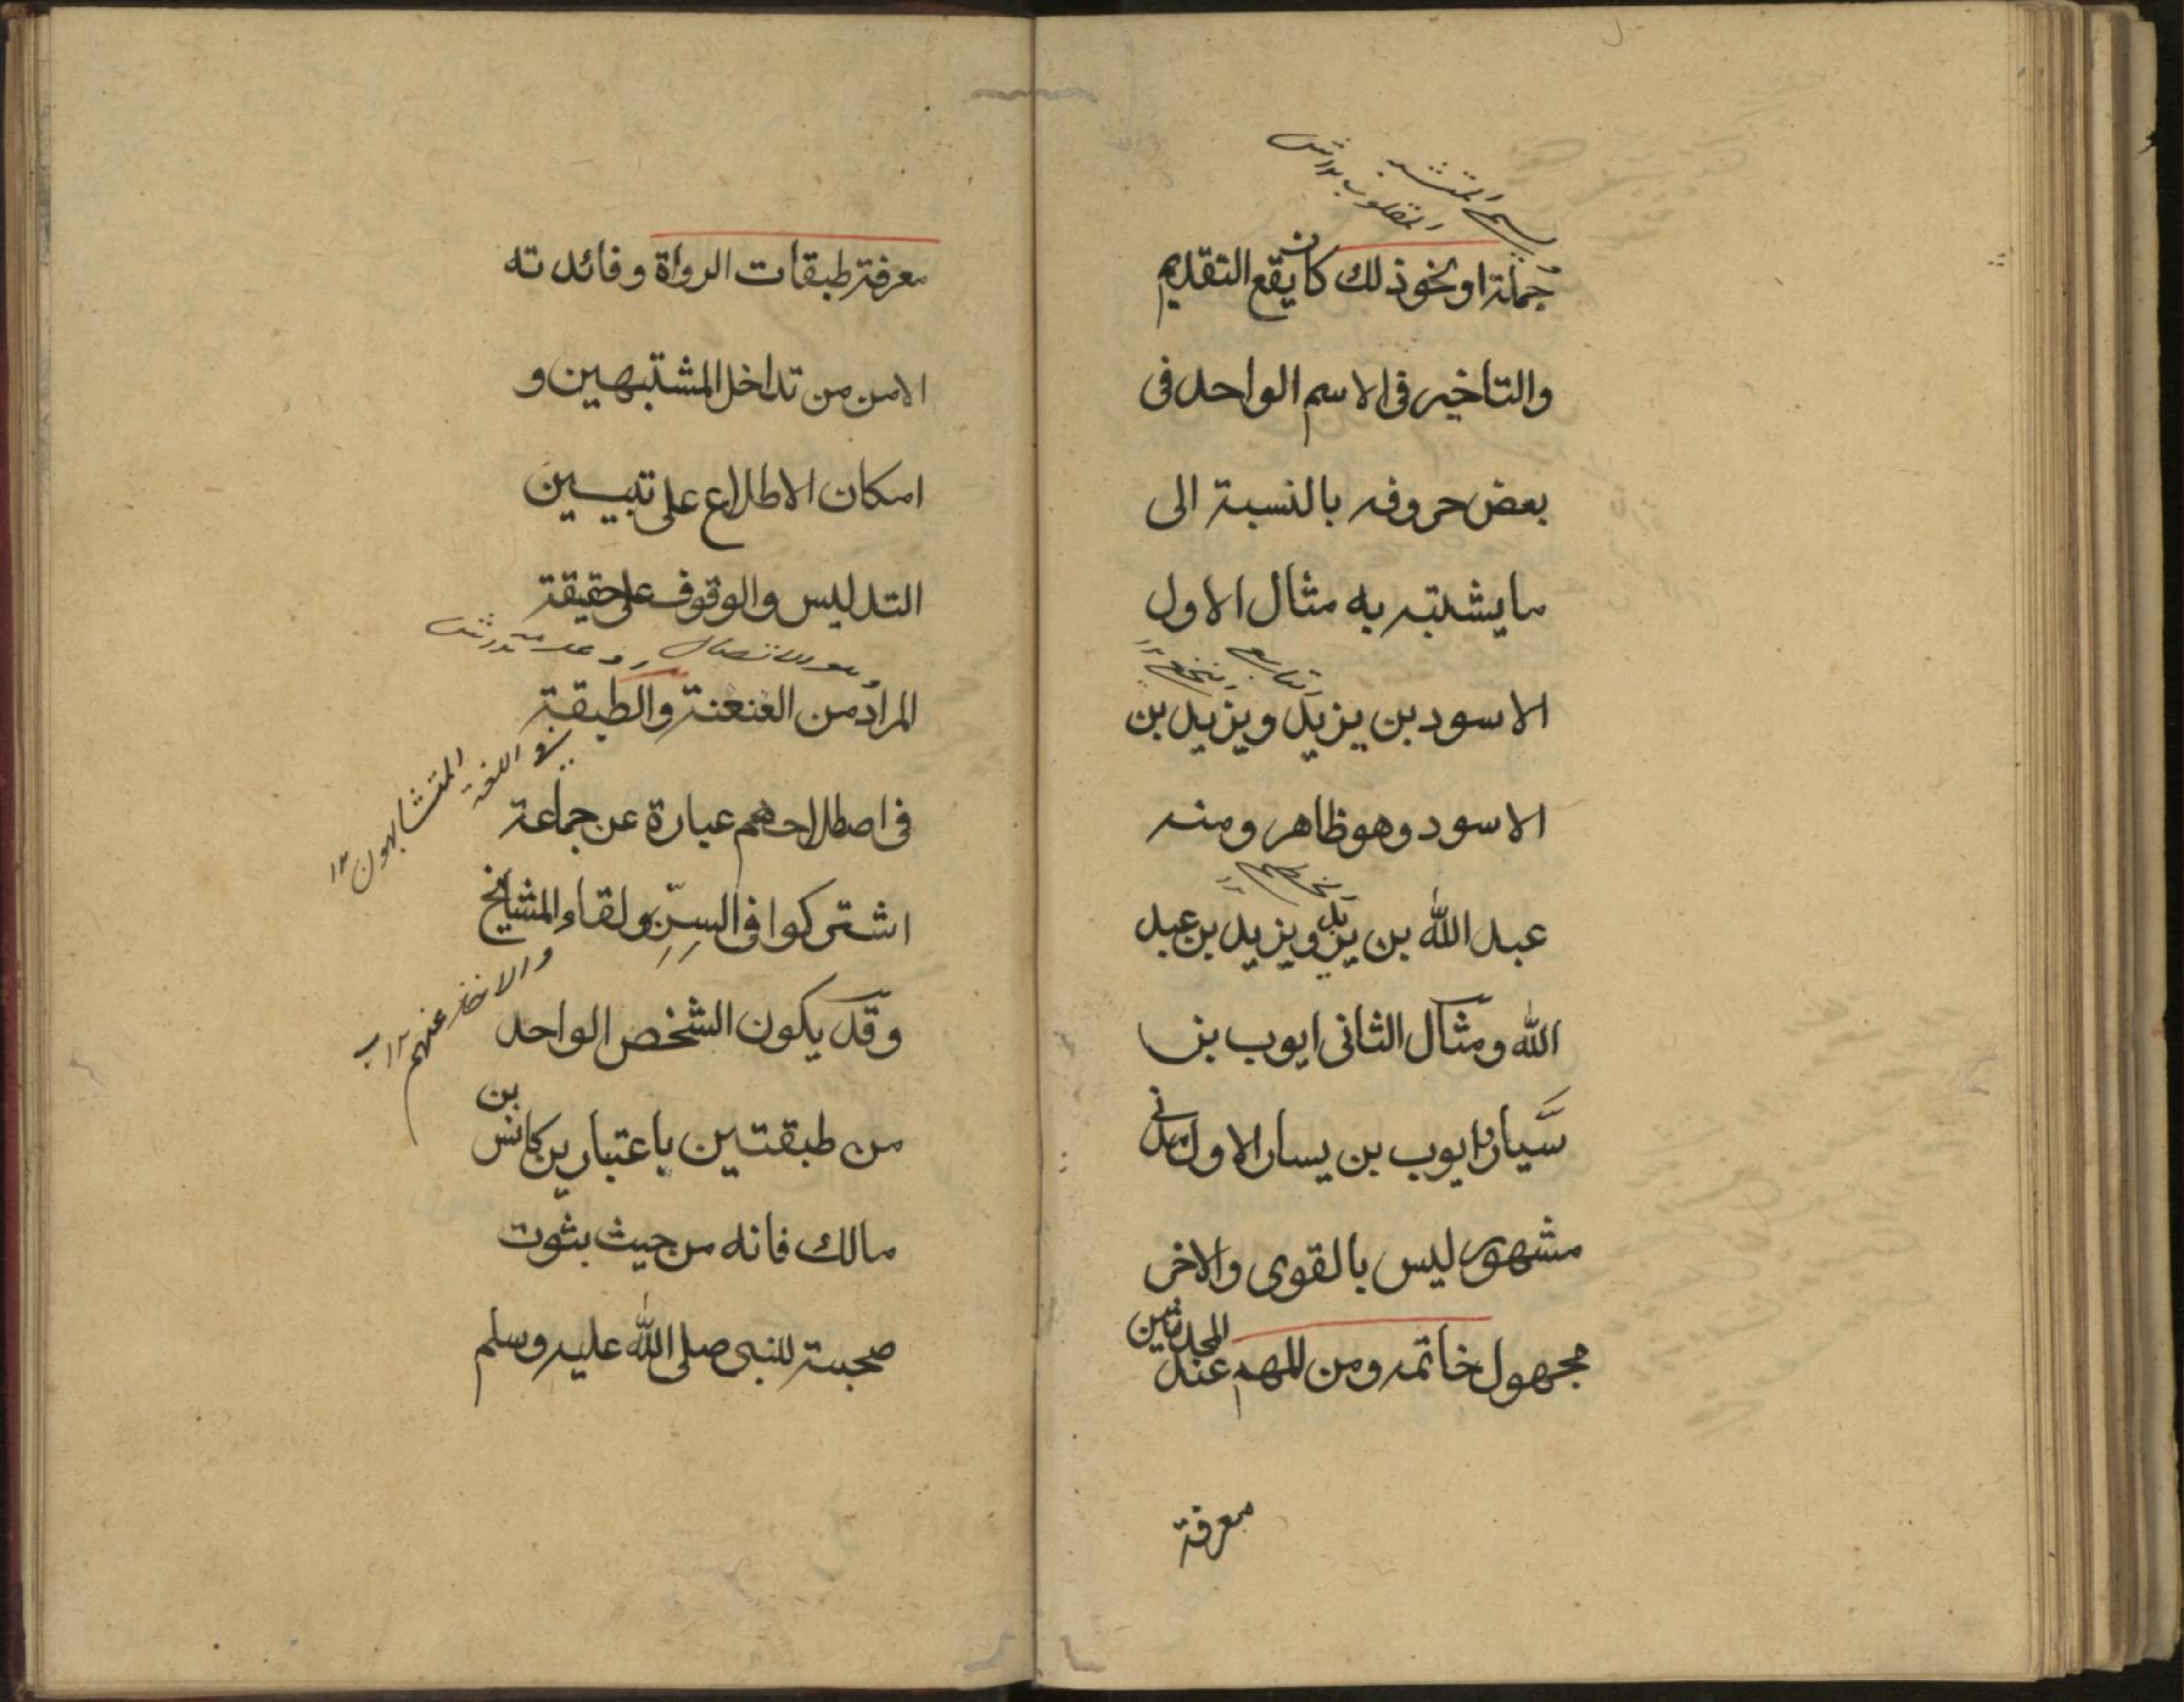 يسمى المشتبه
المقلوب ١٢ ش
جملة او نحو ذلك كان يقع التقديم
والتاخير فى الاسم الواحد فى
بعض حروفه بالنسبة الى
ما يشتبه به مثال الاول
الاسود بن يزيد ويزيد بن
الاسود وهو ظاهر ومنه
عبد الله بن يزيد ويزيد بن عبد
الله ومثال الثانى ايوب بن
سَيار وايوب بن يسار الاول مدنى
مشهور ليس بالقوى والاخر
مجهول خاتمه ومن المهم عند المحدثين
معرفة
معرفة طبقات الرواة وفائدته
الامن من تداخل المشتبهين و
امكان الاطلاع على تبيين
التدليس والوقوف على حقيقة
المراد من العنعنة والطبقة
فى اللغة
المتشابهون ١٢
فى اصطلاحهم عبارة عن جماعة
اشتركوا فى السِنِّ ولقاء المشايخ
والاخذ عنهم ١٢
وقد يكون الشخص الواحد
من طبقتين باعتبارين كانس بن
مالك فانه من حيث ثبوت
صحبته للنبى صلى الله عليه وسلم